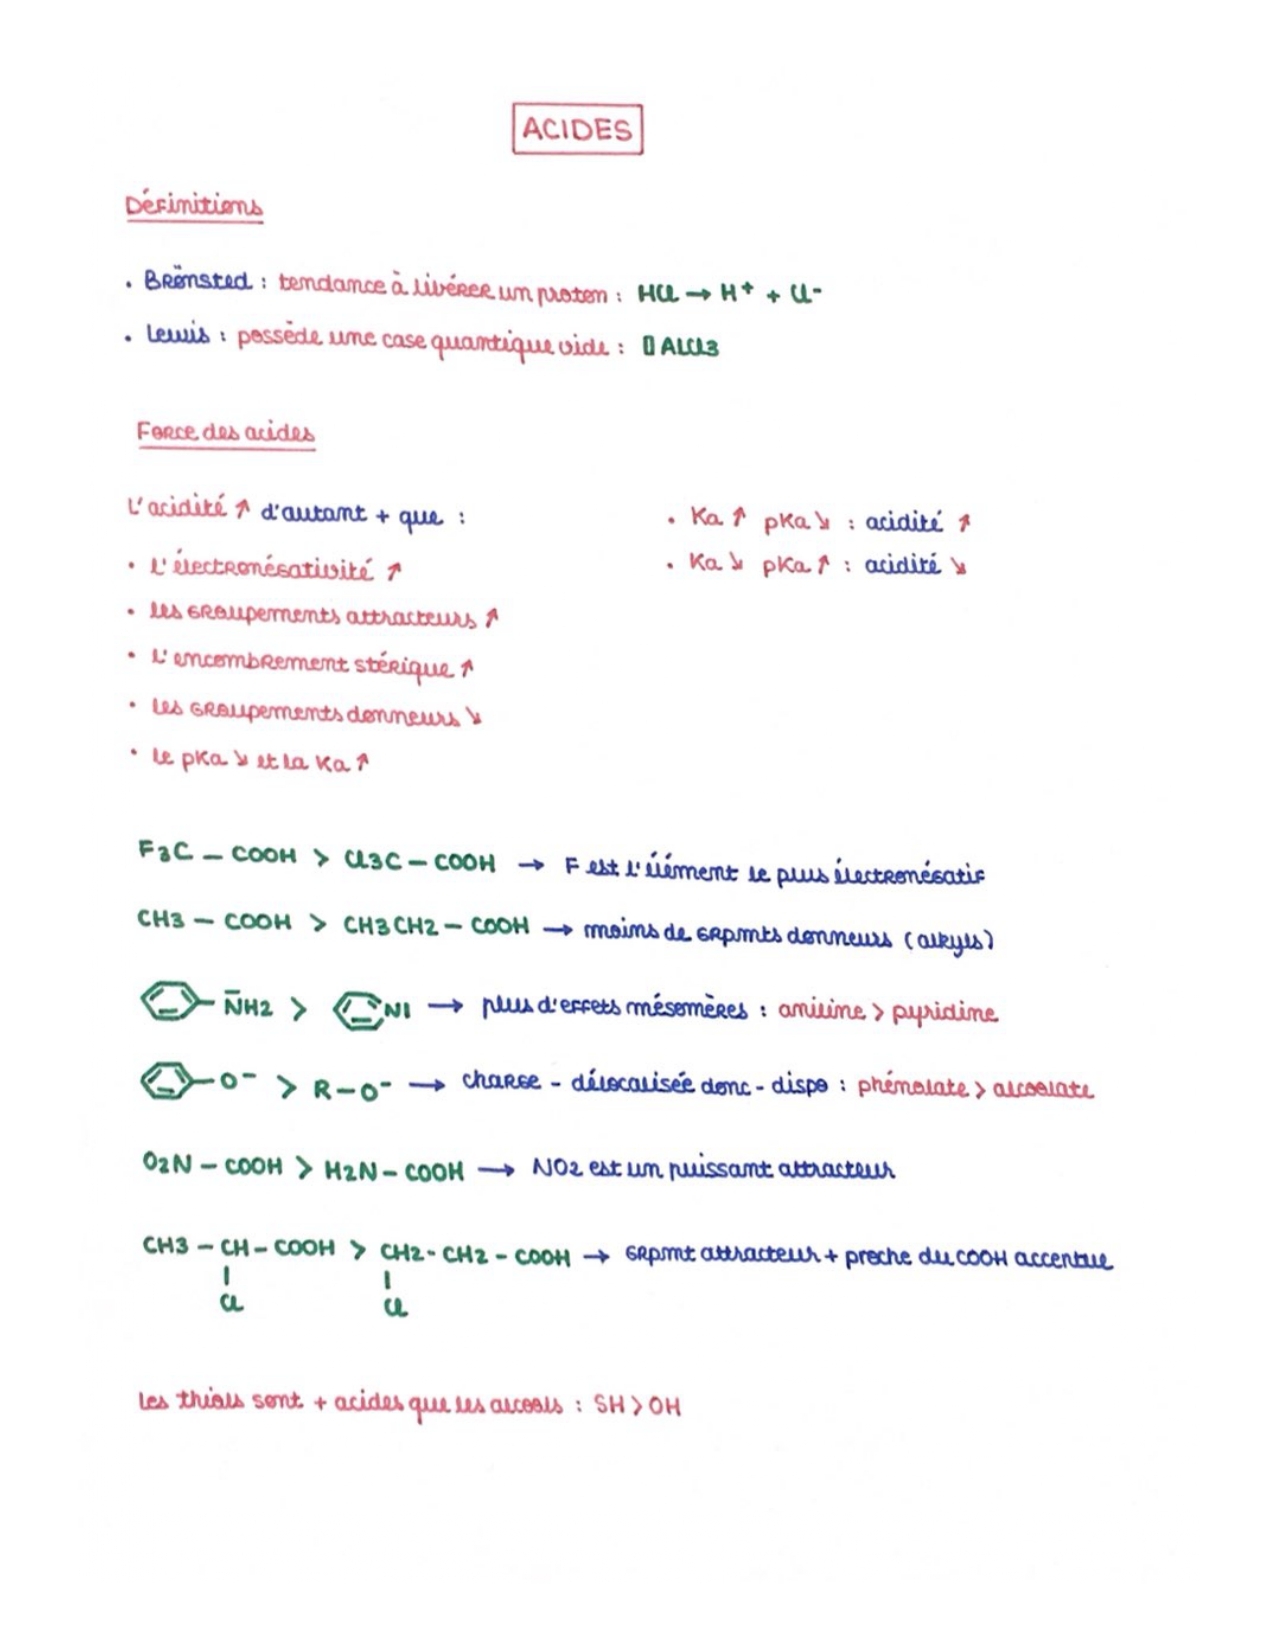 ACIDES
Définitions
• Brönsted : tendance à libérer un proton : HCl → H+ + Cl-
• Lewis : possède une case quantique vide : ▯ AlCl3
Force des acides
L'acidité ↗ d'autant + que :
• l'électronégativité ↗
• les groupements attracteurs ↗
• l'encombrement stérique ↗
• les groupements donneurs ↘
• le pKa ↘ et la Ka ↗
• Ka ↗ pKa ↘ : acidité ↗
• Ka ↘ pKa ↗ : acidité ↘
F3C — COOH > Cl3C — COOH → F est l'élément le plus électronégatif
CH3 — COOH > CH3CH2 — COOH → moins de grpmts donneurs (alkyls)
NH2 > NI → plus d'effets mésomères : aniline > pyridine
O- > R-O- → charge - délocalisée donc - dispo : phénolate > alcoolate
O2N — COOH > H2N — COOH → NO2 est un puissant attracteur
CH3 — CH — COOH > CH2 - CH2 - COOH → grpmt attracteur + proche du COOH accentue
Cl Cl
Les thiols sont + acides que les alcools : SH > OH